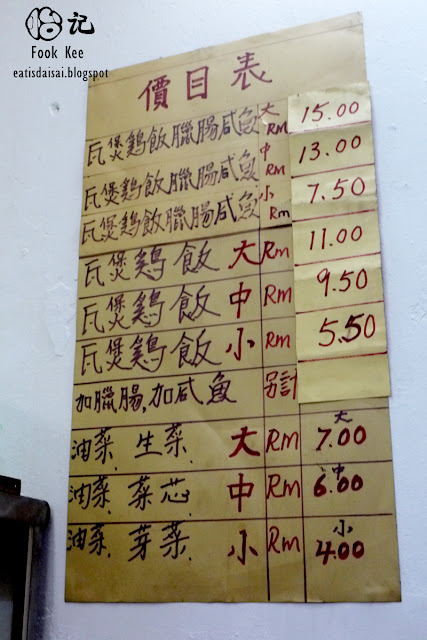 怡記
Fook Kee
eatisdaisai.blogspot
價目表
瓦煲鷄飯臘腸咸魚 大 RM 15.00
瓦煲鷄飯臘腸咸魚 中 RM 13.00
瓦煲鷄飯臘腸咸魚 小 Rm 7.50
瓦煲鷄飯 大 Rm 11.00
瓦煲鷄飯 中 Rm 9.50
瓦煲鷄飯 小 Rm 5.50
加臘腸,加咸魚 另計
油菜. 生菜. 大 Rm 大 7.00
油菜. 菜芯. 中 Rm 中 6.00
油菜. 芽菜. 小 Rm 小 4.00